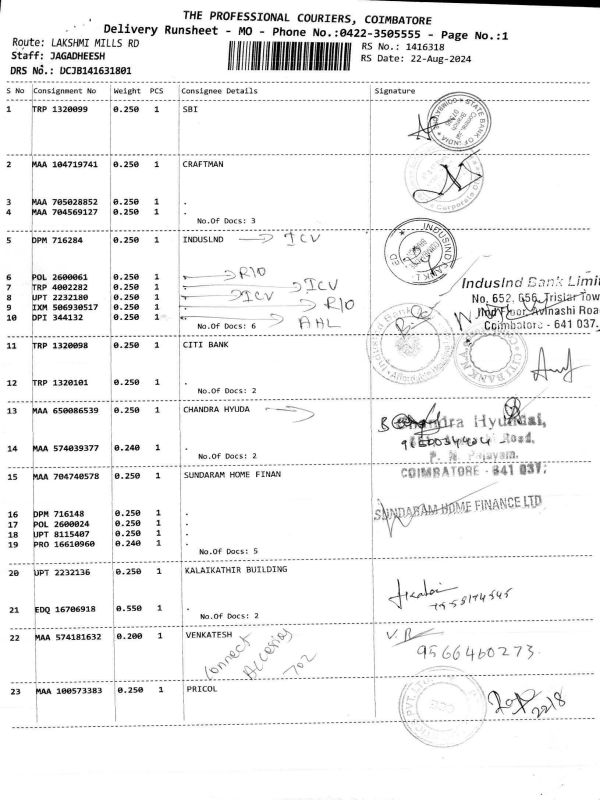 THE PROFESSIONAL COURIERS, COIMBATORE
Delivery Runsheet - MO - Phone No.:0422-3505555 - Page No.:1
Route: LAKSHMI MILLS RD
RS No.: 1416318
Staff: JAGADHEESH
RS Date: 22-Aug-2024
DRS No.: DCJB141631801
S No Consignment No Weight PCS Consignee Details Signature
1 TRP 1320099 0.250 1 SBI
STATE BANK OF INDIA
2 MAA 104719741 0.250 1 CRAFTMAN
3 MAA 705028852 0.250 1 .
4 MAA 704569127 0.250 1 .
No.Of Docs: 3
5 DPM 716284 0.250 1 INDUSLND ICV
6 POL 2600061 0.250 1 . R10
7 TRP 4002282 0.250 1 . ICV
8 UPT 2232180 0.250 1 . ICV
9 IXM 506930517 0.250 1 . R10
10 DPI 344132 0.250 1 . AHL
No.Of Docs: 6
IndusInd Bank Limit
No. 652, 656, Tristar Tow
IInd Floor, Avinashi Road
Coimbatore - 641 037.
11 TRP 1320098 0.250 1 CITI BANK
12 TRP 1320101 0.250 1 .
No.Of Docs: 2
13 MAA 650086539 0.250 1 CHANDRA HYUDA
Chandra Hyundai,
Road,
14 MAA 574039377 0.240 1 .
No.Of Docs: 2
COIMBATORE - 641 037.
15 MAA 704740578 0.250 1 SUNDARAM HOME FINAN
SUNDARAM HOME FINANCE LTD
16 DPM 716148 0.250 1 .
17 POL 2600024 0.250 1 .
18 UPT 8115407 0.250 1 .
19 PRO 16610960 0.240 1 .
No.Of Docs: 5
20 UPT 2232136 0.250 1 KALAIKATHIR BUILDING
21 EDQ 16706918 0.550 1 .
No.Of Docs: 2
22 MAA 574181632 0.200 1 VENKATESH
Connect
702
9566460273.
23 MAA 100573383 0.250 1 PRICOL
22/8